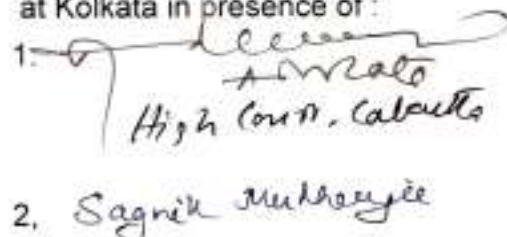 at Kolkata in presence of :
1.
Advocate
High Court, Calcutta
2. Sagnik Mukherjee